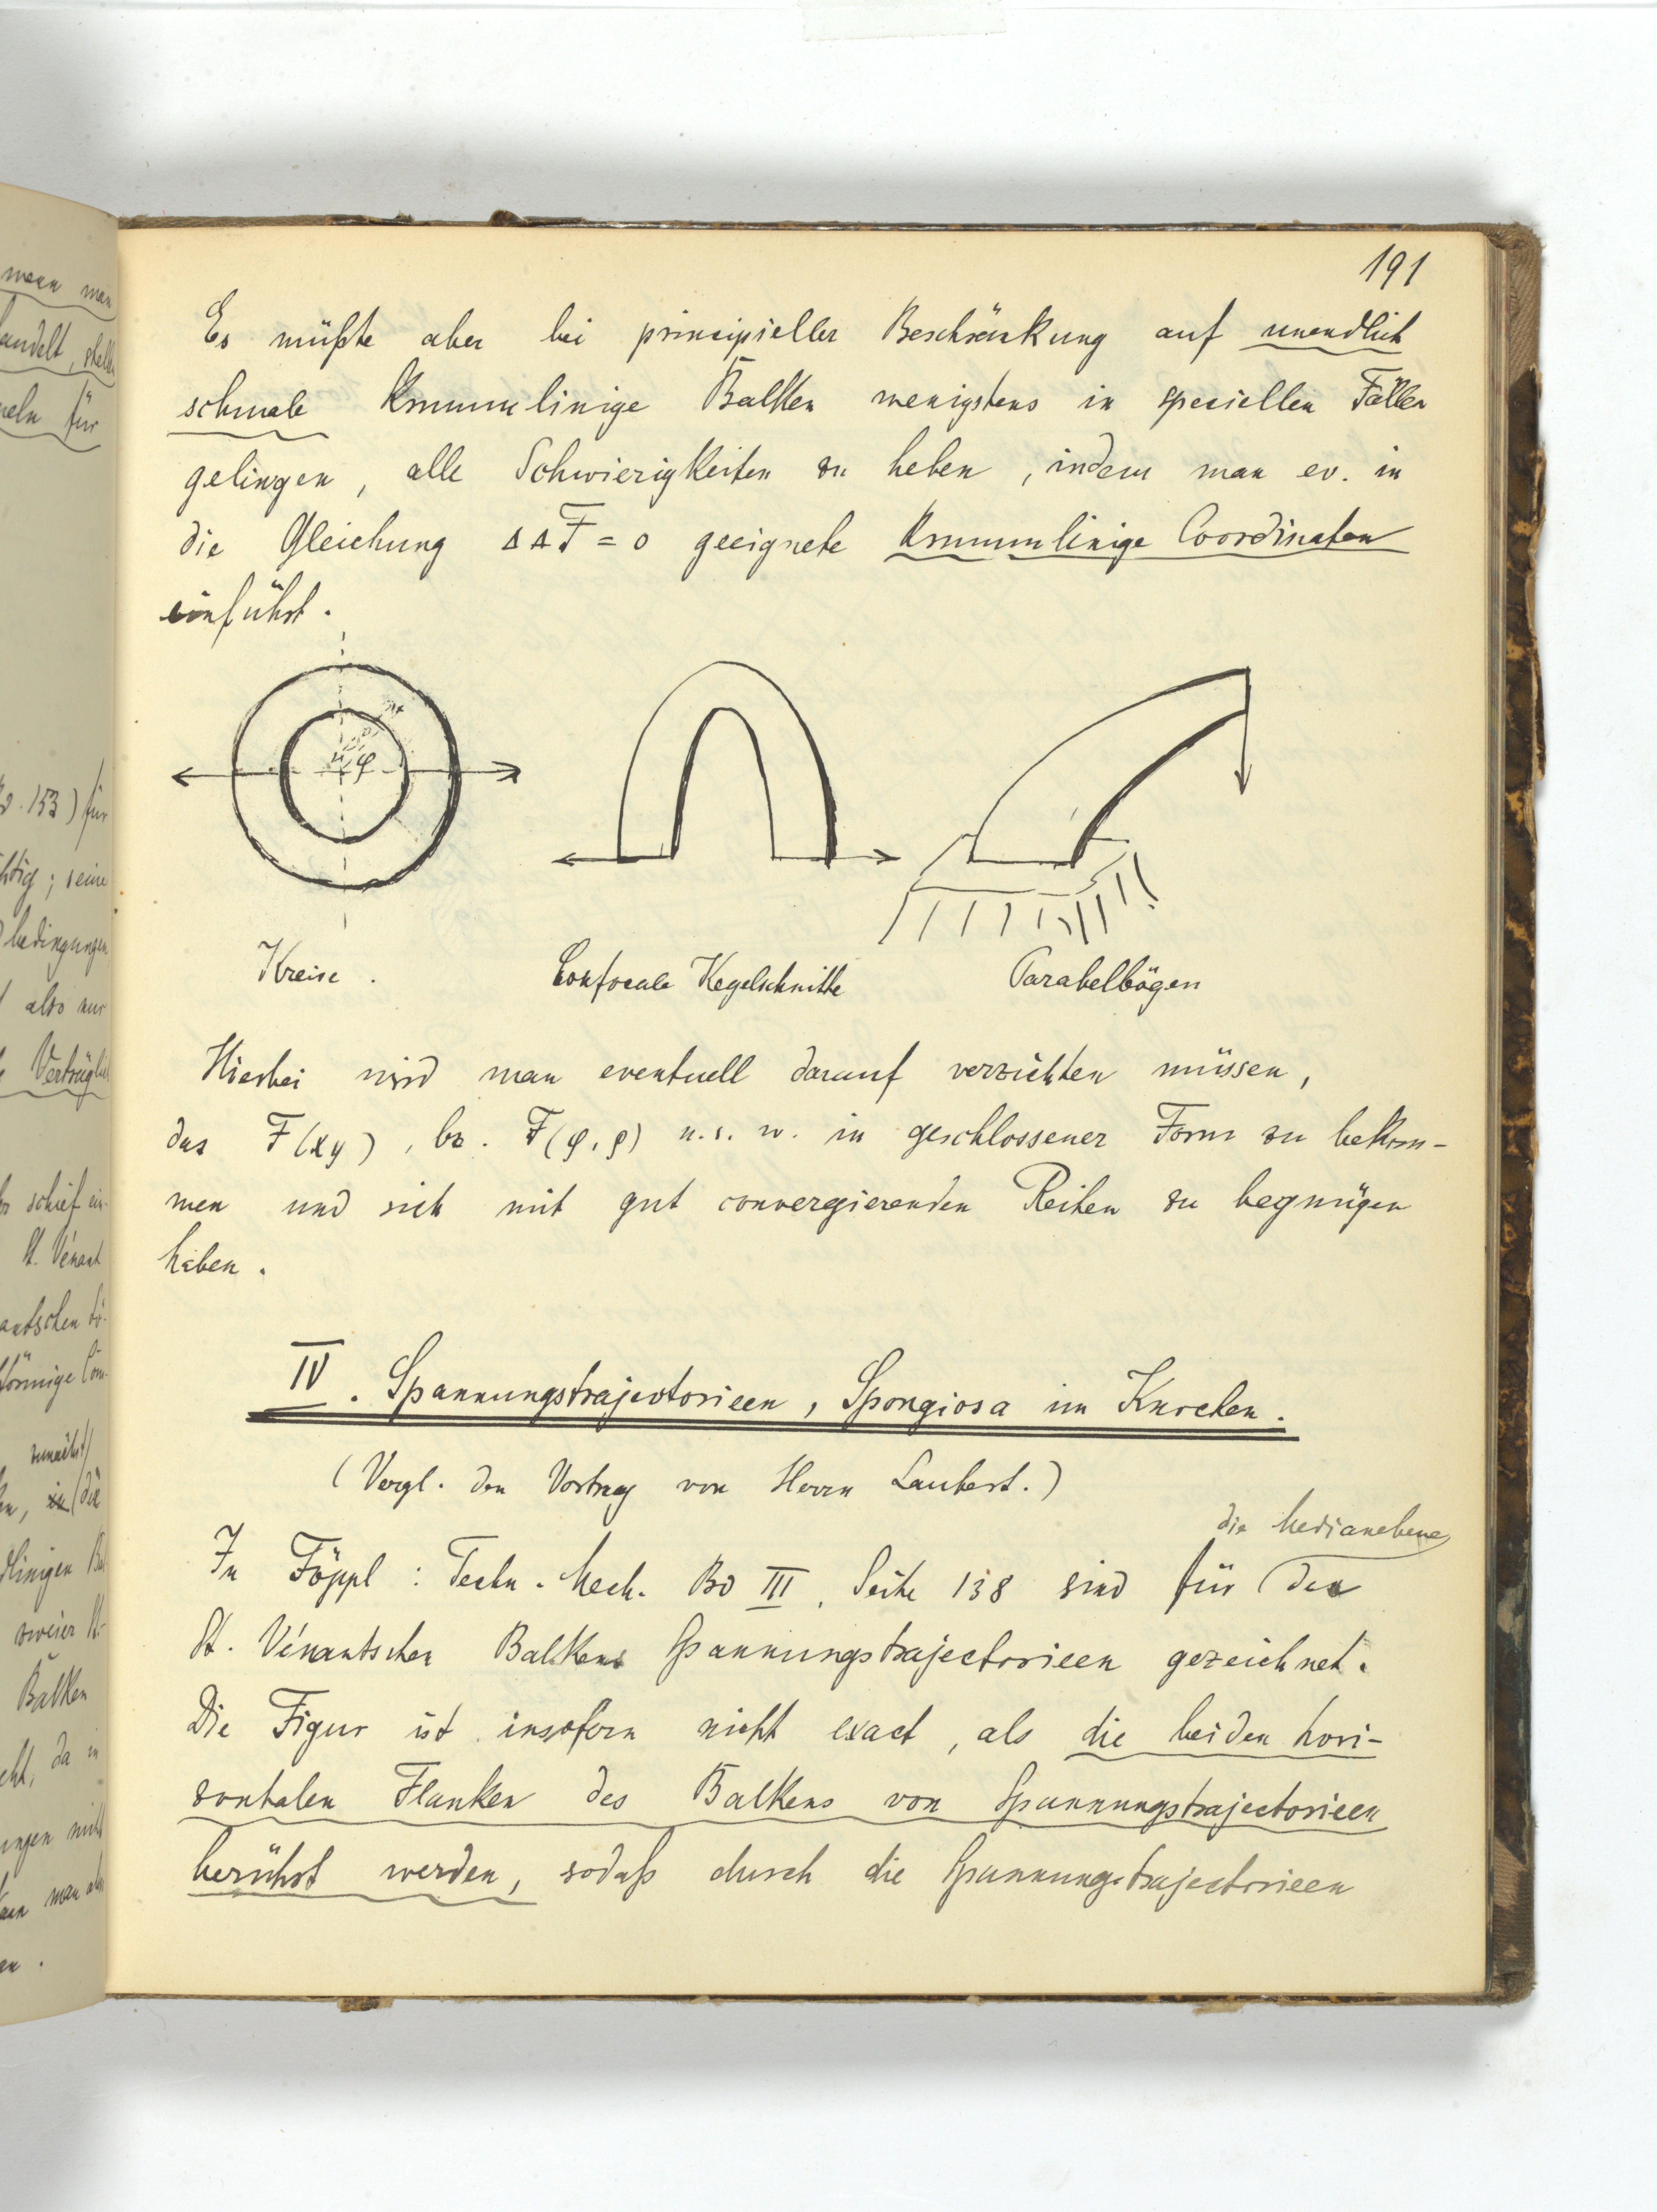 191
Es müßte aber bei principieller Beschränkung auf unendlich
schmale krummlinige Balken wenigstens in speciellen Fällen
gelingen, alle Schwierigkeiten zu heben, indem man ev. in
die Gleichung ΔΔF = 0 geeignete krummlinige Coordinaten
einführt.
φ
Kreise.
Confocale Kegelschnitte
Parabelbögen
Hierbei wird man eventuell darauf verzichten müssen,
das F(xy), bz. F(φ,ρ) u.s.w. in geschlossener Form zu bekom-
men und sich mit gut convergierenden Reihen zu begnügen
haben.
IV. Spannungstrajectorieen, Spongiosa im Knochen.
(Vergl. den Vortrag von Herrn Laubert.)
die Medianebene
In Föppl: Techn. Mech. Bd III, Seite 138 sind für des
St. Vénantschen Balkens Spannungstrajectorieen gezeichnet.
Die Figur ist insofern nicht exact, als die beiden hori-
zontalen Flanken des Balkens von Spannungstrajectorieen
berührt werden, sodaß durch die Spannungstrajectorieen
wenn man
andelt, stell
meln für
Bd. 153) für
htig; seine
bedingungen
also nur
Verträglich
schief ein-
St. Vénant
antschen Lö-
förmige Com-
zunächst
in die
dlinigen Bal
zweier St.-
Balken
cht, da in
ungen nicht
kann man als
en.